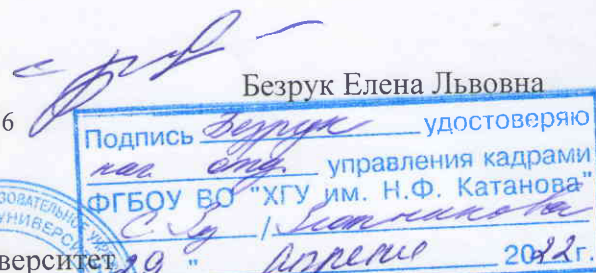 Безрук Елена Львовна
6
Подпись Безрук удостоверяю
нач. отд. управления кадрами
ФГБОУ ВО "ХГУ им. Н.Ф. Катанова"
/
верситет
29 " апреля 2022г.